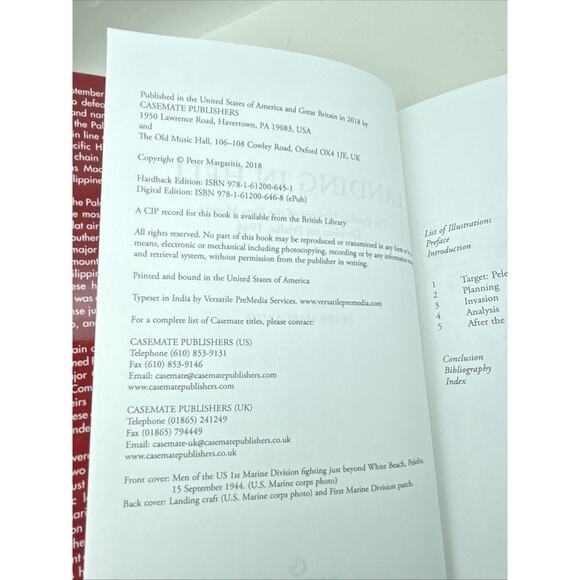 Published in the United States of America and Great Britain in 2018 by
CASEMATE PUBLISHERS
1950 Lawrence Road, Havertown, PA 19083, USA
and
The Old Music Hall, 106–108 Cowley Road, Oxford OX4 1JE, UK
Copyright © Peter Margaritis, 2018
Hardback Edition: ISBN 978-1-61200-645-1
Digital Edition: ISBN 978-1-61200-646-8 (ePub)
A CIP record for this book is available from the British Library
All rights reserved. No part of this book may be reproduced or transmitted in any form or by any
means, electronic or mechanical including photocopying, recording or by any information storage
and retrieval system, without permission from the publisher in writing.
Printed and bound in the United States of America
Typeset in India by Versatile PreMedia Services. www.versatilepremedia.com
For a complete list of Casemate titles, please contact:
CASEMATE PUBLISHERS (US)
Telephone (610) 853-9131
Fax (610) 853-9146
Email: casemate@casematepublishers.com
www.casematepublishers.com
CASEMATE PUBLISHERS (UK)
Telephone (01865) 241249
Fax (01865) 794449
Email: casemate-uk@casematepublishers.co.uk
www.casematepublishers.co.uk
Front cover: Men of the US 1st Marine Division fighting just beyond White Beach, Peleliu,
15 September 1944. (U.S. Marine corps photo)
Back cover: Landing craft (U.S. Marine corps photo) and First Marine Division patch.
List of Illustrations
Preface
Introduction
1 Target: Pele
2 Planning
3 Invasion
4 Analysis
5 After the
Conclusion
Bibliography
Index